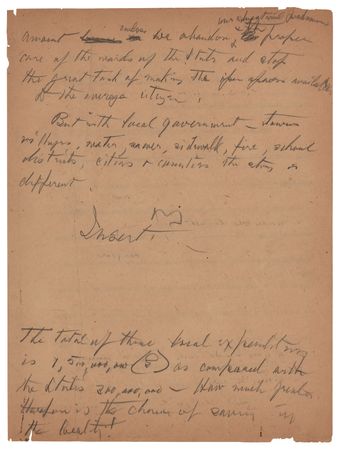 our educational
amount unless we abandon the proper
care of the wards of the State and stop
the great task of making the open spaces available
to the average citizen.
But with local government – towns
villages, water, sewer, sidewalk, fire, school
districts, cities & counties the story is
different.
Insert.
The total of these local expenditures
is 1,500,000,000 (?) as compared with
the States 300,000,000 – How much greater
therefore is the chance of saving in
the locality!